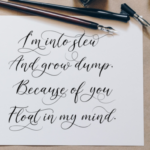 I'm into stew
And grow dump.
Because of you
Float in my mind.